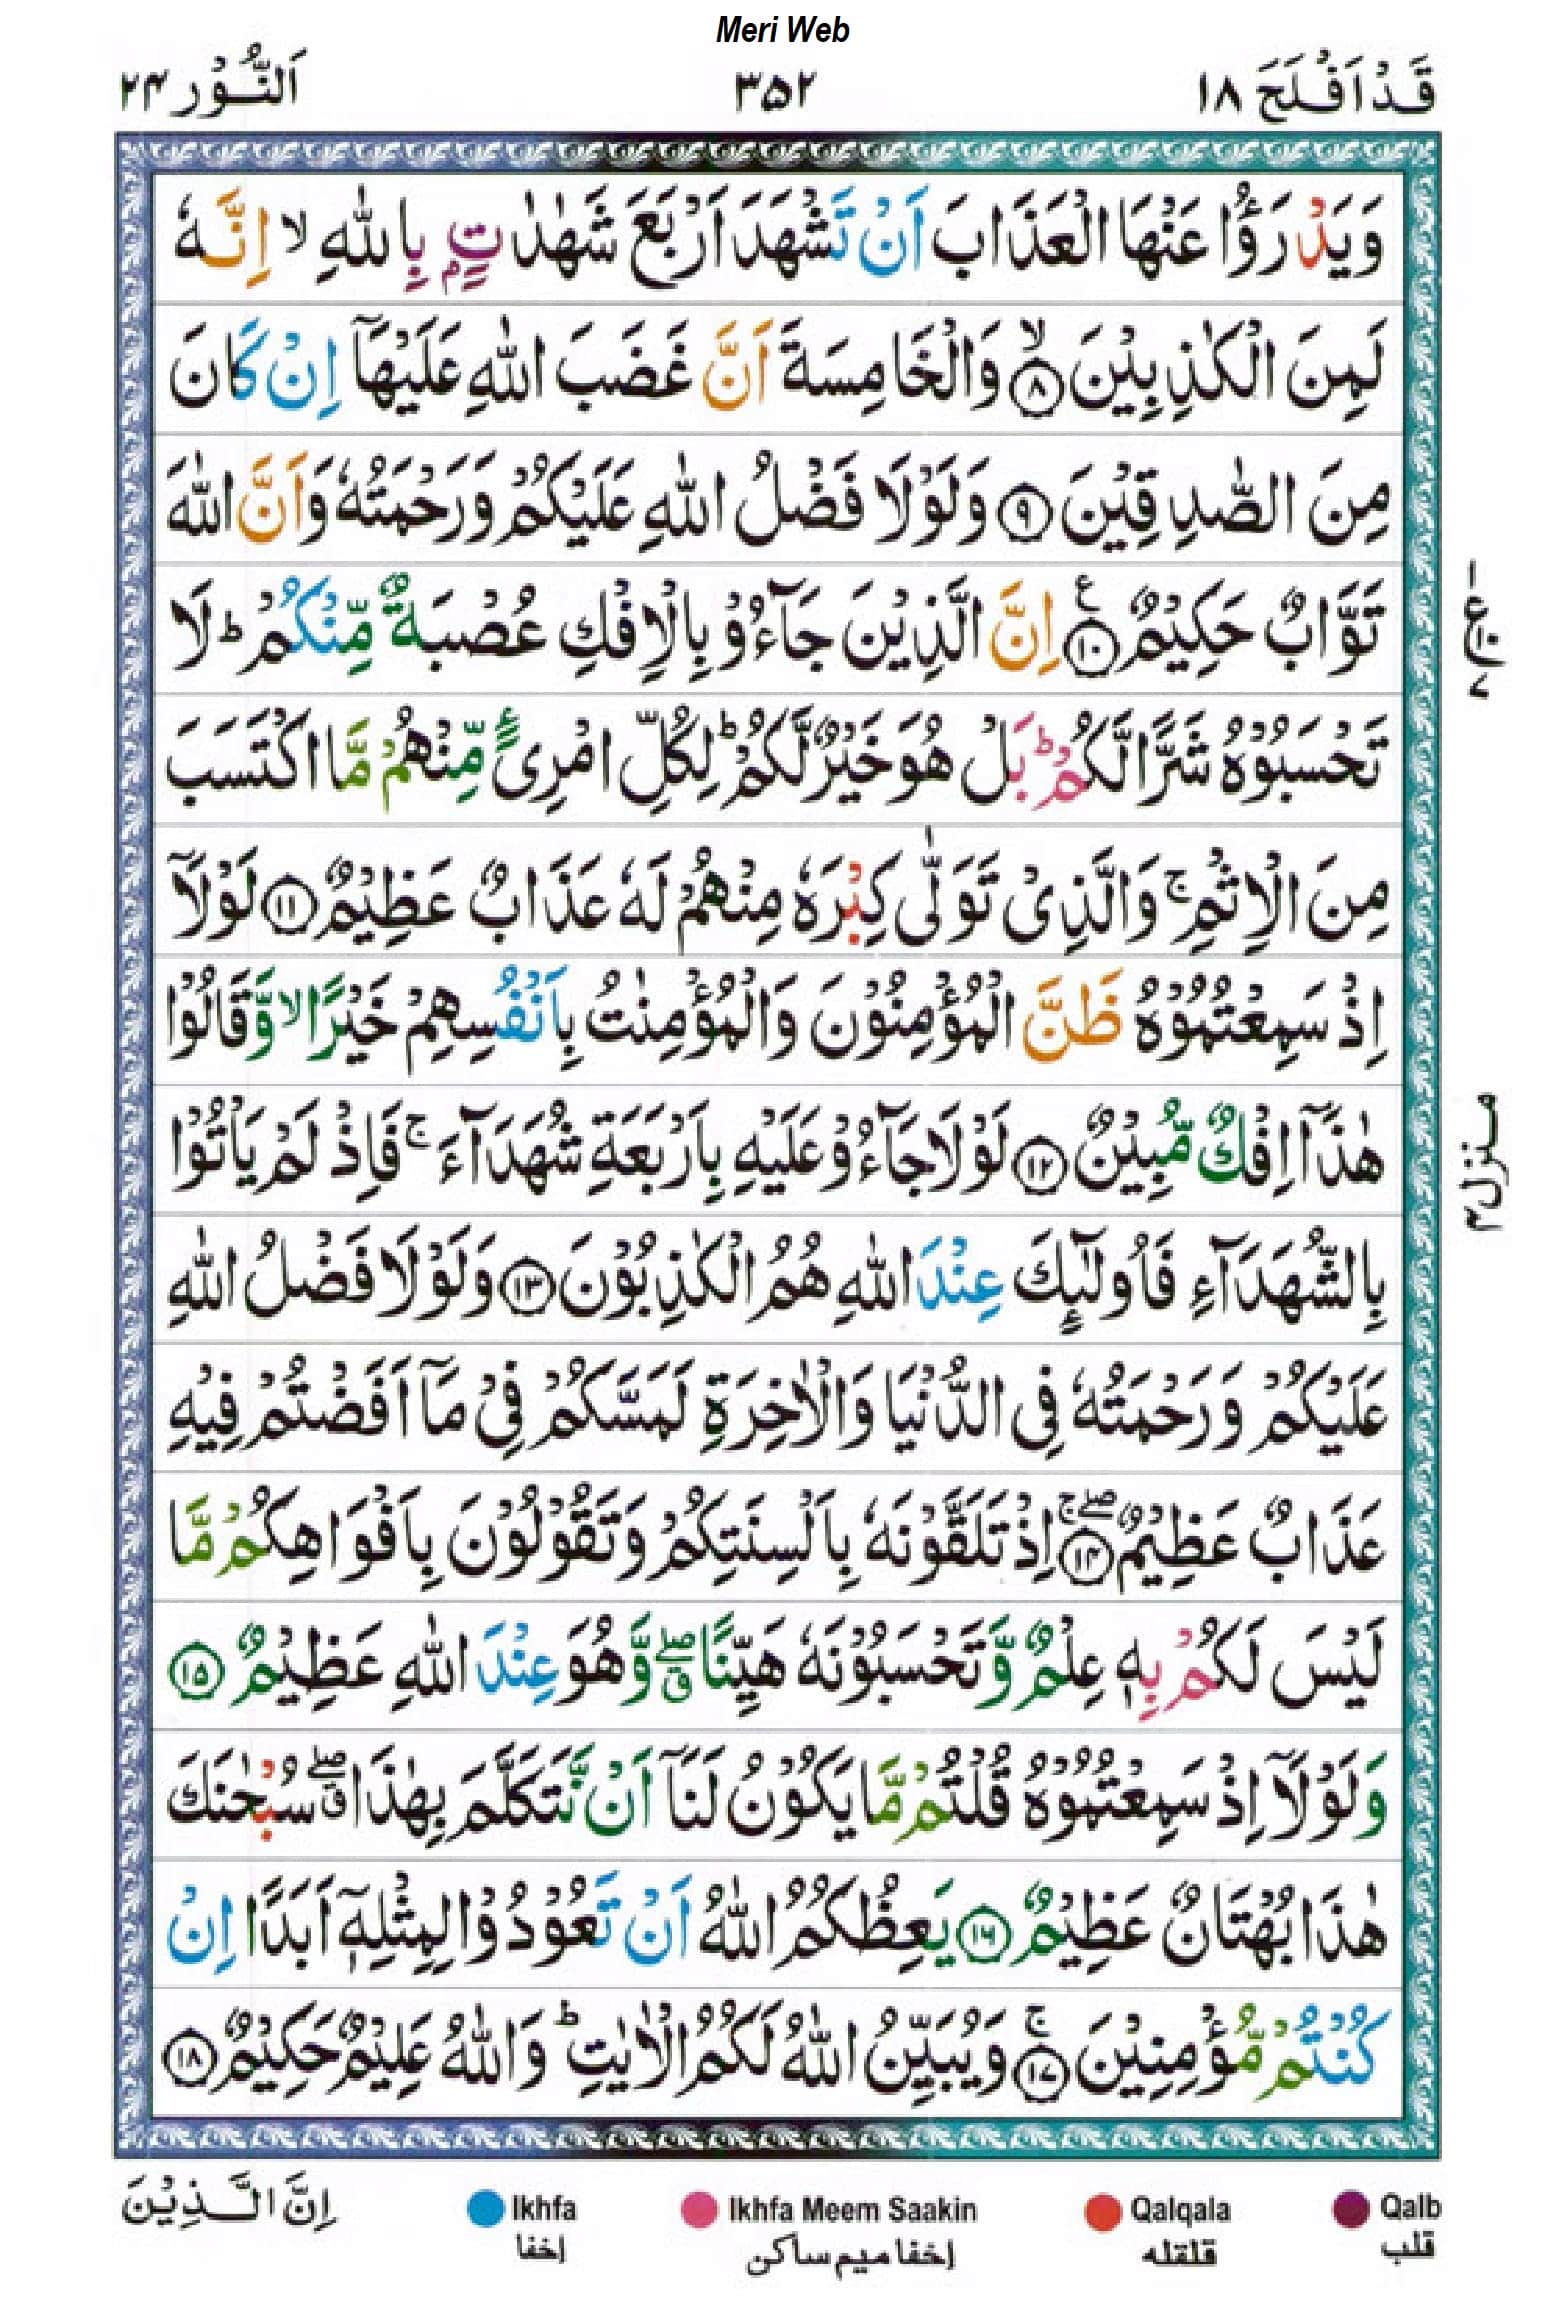 Meri Web
قَدْ اَفْلَحَ ۱۸
۳۵۲
اَلنُّوْر ۲۴
وَيَدْرَؤُا عَنْهَا الْعَذَابَ اَنْ تَشْهَدَ اَرْبَعَ شَهٰدٰتٍۭ بِاللّٰهِ ۙ اِنَّهٗ
لَمِنَ الْكٰذِبِيْنَ ۙ۝۸ وَالْخَامِسَةَ اَنَّ غَضَبَ اللّٰهِ عَلَيْهَاۤ اِنْ كَانَ
مِنَ الصّٰدِقِيْنَ ۝۹ وَلَوْلَا فَضْلُ اللّٰهِ عَلَيْكُمْ وَرَحْمَتُهٗ وَاَنَّ اللّٰهَ
تَوَّابٌ حَكِيْمٌ ۝۱۰ع اِنَّ الَّذِيْنَ جَآءُوْ بِالْاِفْكِ عُصْبَةٌ مِّنْكُمْ ؕ لَا
تَحْسَبُوْهُ شَرًّا لَّكُمْ ؕ بَلْ هُوَ خَيْرٌ لَّكُمْ ؕ لِكُلِّ امْرِئٍ مِّنْهُمْ مَّا اكْتَسَبَ
مِنَ الْاِثْمِ ۚ وَالَّذِيْ تَوَلّٰى كِبْرَهٗ مِنْهُمْ لَهٗ عَذَابٌ عَظِيْمٌ ۝۱۱ لَوْلَاۤ
اِذْ سَمِعْتُمُوْهُ ظَنَّ الْمُؤْمِنُوْنَ وَالْمُؤْمِنٰتُ بِاَنْفُسِهِمْ خَيْرًا ۙ وَّقَالُوْا
هٰذَاۤ اِفْكٌ مُّبِيْنٌ ۝۱۲ لَوْلَا جَآءُوْ عَلَيْهِ بِاَرْبَعَةِ شُهَدَآءَ ۚ فَاِذْ لَمْ يَاْتُوْا
بِالشُّهَدَآءِ فَاُولٰٓئِكَ عِنْدَ اللّٰهِ هُمُ الْكٰذِبُوْنَ ۝۱۳ وَلَوْلَا فَضْلُ اللّٰهِ
عَلَيْكُمْ وَرَحْمَتُهٗ فِي الدُّنْيَا وَالْاٰخِرَةِ لَمَسَّكُمْ فِيْ مَاۤ اَفَضْتُمْ فِيْهِ
عَذَابٌ عَظِيْمٌ ۝۱۴ۖۚ اِذْ تَلَقَّوْنَهٗ بِاَلْسِنَتِكُمْ وَتَقُوْلُوْنَ بِاَفْوَاهِكُمْ مَّا
لَيْسَ لَكُمْ بِهٖ عِلْمٌ وَّتَحْسَبُوْنَهٗ هَيِّنًا ۖۗ وَّهُوَ عِنْدَ اللّٰهِ عَظِيْمٌ ۝۱۵
وَلَوْلَاۤ اِذْ سَمِعْتُمُوْهُ قُلْتُمْ مَّا يَكُوْنُ لَنَاۤ اَنْ نَّتَكَلَّمَ بِهٰذَا ۖۗ سُبْحٰنَكَ
هٰذَا بُهْتَانٌ عَظِيْمٌ ۝۱۶ يَعِظُكُمُ اللّٰهُ اَنْ تَعُوْدُوْا لِمِثْلِهٖۤ اَبَدًا اِنْ
كُنْتُمْ مُّؤْمِنِيْنَ ۚ۝۱۷ وَيُبَيِّنُ اللّٰهُ لَكُمُ الْاٰيٰتِ ؕ وَاللّٰهُ عَلِيْمٌ حَكِيْمٌ ۝۱۸
ع
۷
منزل۴
اِنَّ الَّذِيْنَ
Ikhfa
اخفا
Ikhfa Meem Saakin
اخفا ميم ساكن
Qalqala
قلقله
Qalb
قلب